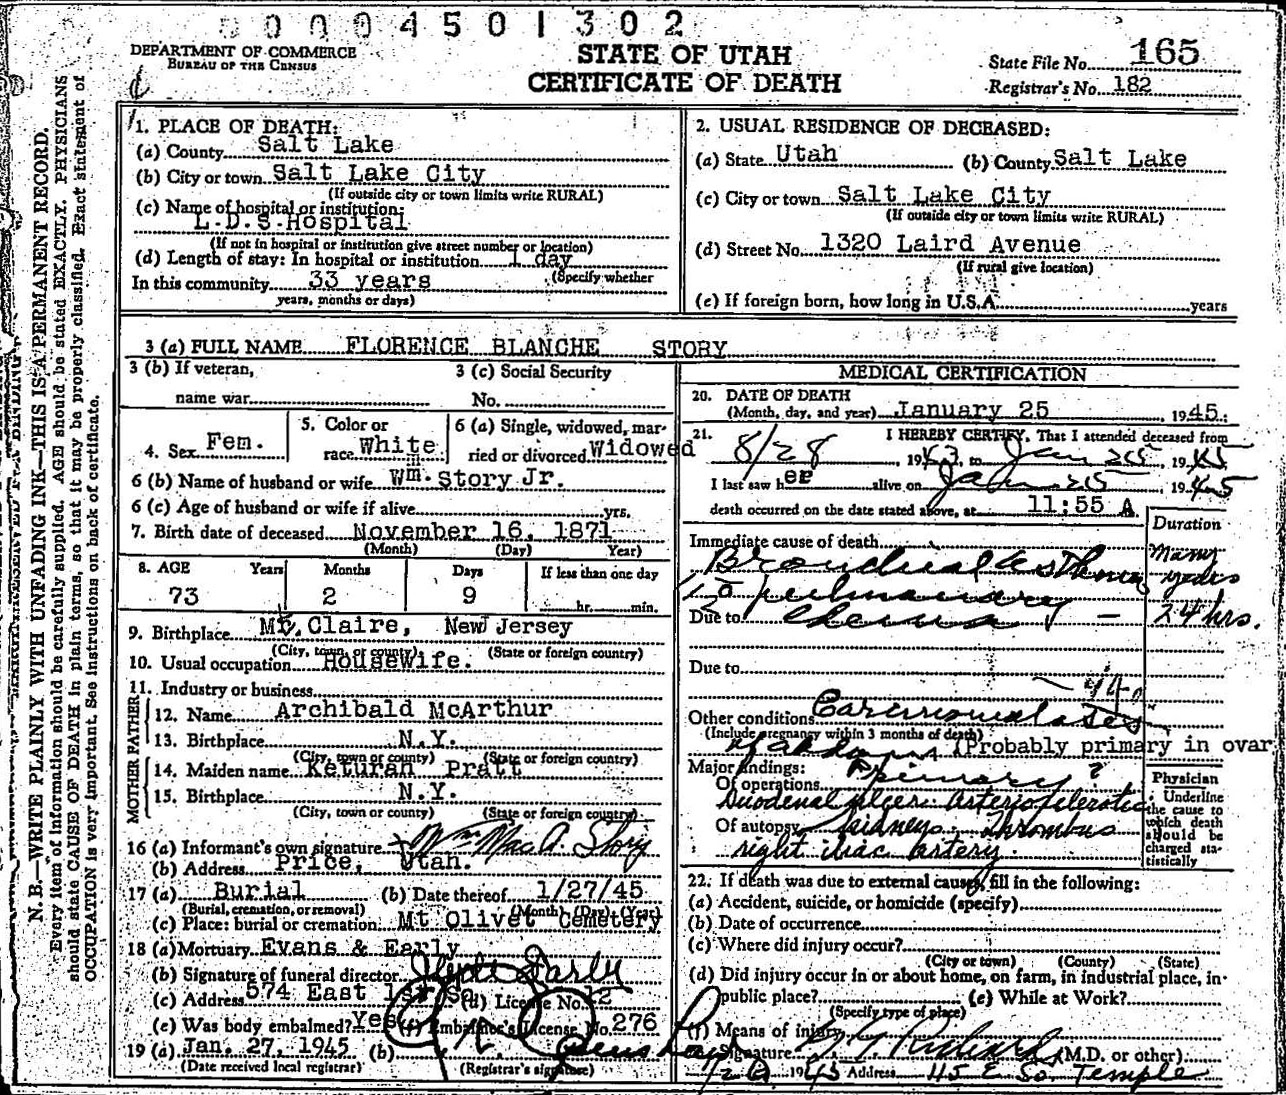 0004501302
DEPARTMENT OF COMMERCE
BUREAU OF THE CENSUS
STATE OF UTAH
CERTIFICATE OF DEATH
State File No. 165
Registrar's No. 182
N. B.—WRITE PLAINLY WITH UNFADING INK—THIS IS A PERMANENT RECORD.
Every item of information should be carefully supplied. AGE should be stated EXACTLY. PHYSICIANS
should state CAUSE OF DEATH in plain terms, so that it may be properly classified. Exact statement of
OCCUPATION is very important. See instructions on back of certificate.
1. PLACE OF DEATH:
(a) County Salt Lake
(b) City or town Salt Lake City
(If outside city or town limits write RURAL)
(c) Name of hospital or institution:
L.D.S. Hospital
(If not in hospital or institution give street number or location)
(d) Length of stay: In hospital or institution 1 day
(Specify whether
In this community 33 years
years, months or days)
2. USUAL RESIDENCE OF DECEASED:
(a) State Utah (b) County Salt Lake
(c) City or town Salt Lake City
(If outside city or town limits write RURAL)
(d) Street No. 1320 Laird Avenue
(If rural give location)
(e) If foreign born, how long in U.S.A. years
3 (a) FULL NAME FLORENCE BLANCHE STORY
3 (b) If veteran,
name war
3 (c) Social Security
No.
4. Sex Fem.
5. Color or
race White
6 (a) Single, widowed, mar-
ried or divorced Widowed
6 (b) Name of husband or wife Wm. Story Jr.
6 (c) Age of husband or wife if alive yrs.
7. Birth date of deceased November 16, 1871
(Month) (Day) Year)
8. AGE Years Months Days If less than one day
73 2 9 hr. min.
9. Birthplace Mt. Claire, New Jersey
(City, town, or county) (State or foreign country)
10. Usual occupation Housewife.
11. Industry or business
FATHER
12. Name Archibald McArthur
13. Birthplace N.Y.
(City, town or county) (State or foreign country)
MOTHER
14. Maiden name Keturah Pratt
15. Birthplace N.Y.
(City, town or county) (State or foreign country)
16 (a) Informant's own signature Wm Mac A. Story
(b) Address Price, Utah.
17 (a) Burial (b) Date thereof 1/27/45
(Burial, cremation, or removal) (Month) (Day) (Year)
(c) Place: burial or cremation Mt Olivet Cemetery
18 (a) Mortuary Evans & Early
(b) Signature of funeral director Early
(c) Address 574 East 1st So. (d) License No. 12
(e) Was body embalmed? Yes (f) Embalmer's License No. 276
19 (a) Jan. 27, 1945 (b)
(Date received local registrar) (Registrar's signature)
MEDICAL CERTIFICATION
20. DATE OF DEATH
(Month, day, and year) January 25, 1945.
21. I HEREBY CERTIFY, That I attended deceased from
8/28, 1943, to Jan 25, 1945
I last saw her alive on Jan 25, 1945
death occurred on the date stated above, at 11:55 A.
Duration
Immediate cause of death
Bronchial asthma Many years
pulmonary
Due to edema — 24 hrs.
Due to
Other conditions Carcinomatosis
(Include pregnancy within 3 months of death)
of abdomen (Probably primary in ovar
Major findings: primary?
Of operations
Duodenal ulcer: arteriosclerotic
Of autopsy kidneys. Thrombus
right iliac artery.
Physician
Underline
the cause to
which death
should be
charged sta-
tistically
22. If death was due to external causes, fill in the following:
(a) Accident, suicide, or homicide (specify)
(b) Date of occurrence
(c) Where did injury occur?
(City or town) (County) (State)
(d) Did injury occur in or about home, on farm, in industrial place, in
public place? (e) While at Work?
(Specify type of place)
(f) Means of injury
Signature Richards (M.D. or other)
1945 Address 115 E So. Temple